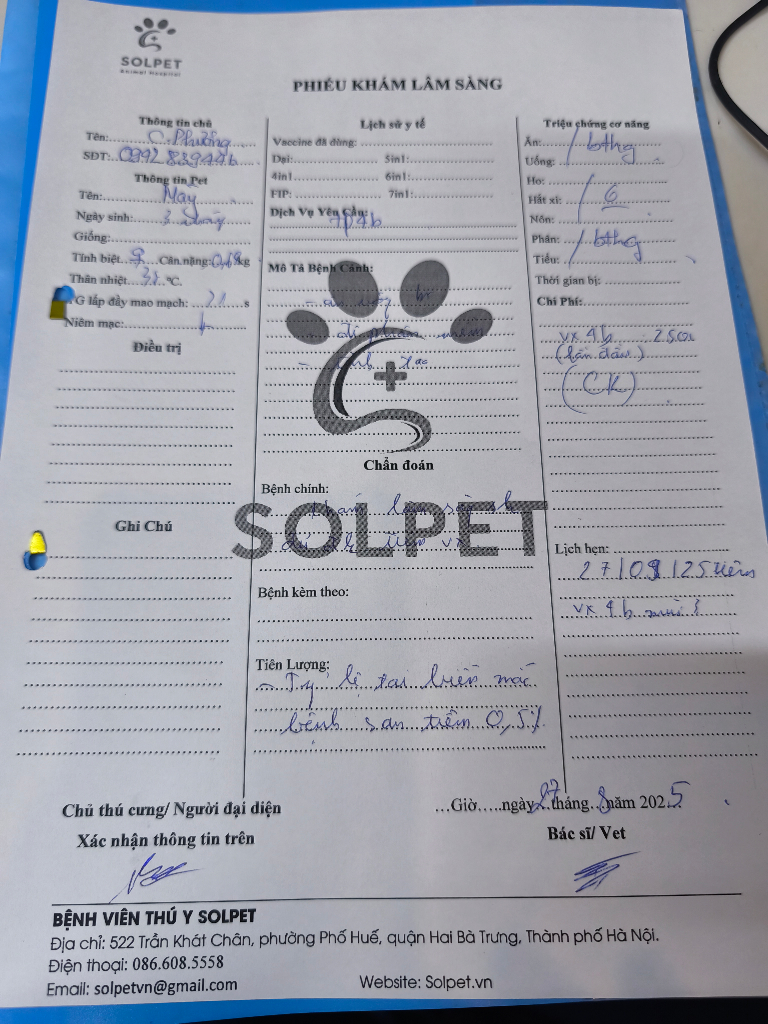 SOLPET
Animal Hospital
PHIẾU KHÁM LÂM SÀNG
Thông tin chủ
Tên: C. Phương
SĐT:
Thông tin Pet
Tên: May
Ngày sinh: 3 tháng
Giống:
Tính biệt: Cân nặng: kg
Thân nhiệt: 38 °C.
TG lấp đầy mao mạch: s
Niêm mạc:
Điều trị
Ghi Chú
Lịch sử y tế
Vaccine đã dùng:
Dại: 5in1:
4in1 6in1:
FIP: 7in1:
Dịch Vụ Yêu Cầu:
Mô Tả Bệnh Cảnh:
- ăn uống bt
- đi phân mềm
Chẩn đoán
Bệnh chính:
Khám lâm sàng
đủ đk tiêm vx
SOLPET
Bệnh kèm theo:
Tiên Lượng:
- Tỷ lệ tai biến mắc
bệnh sau tiêm 0,5%
Triệu chứng cơ năng
Ăn: / bthg
Uống:
Ho:
Hắt xì:
Nôn:
Phân: / bthg
Tiểu:
Thời gian bị:
Chi Phí:
vx 4b
(lần đầu)
(CK)
Lịch hẹn:
27/09/25 tiêm
vx 4b mũi
Chủ thú cưng/ Người đại diện
Xác nhận thông tin trên
...Giờ.....ngày 27 tháng 8 năm 2025
Bác sĩ/ Vet
BỆNH VIÊN THÚ Y SOLPET
Địa chỉ: 522 Trần Khát Chân, phường Phố Huế, quận Hai Bà Trưng, Thành phố Hà Nội.
Điện thoại: 086.608.5558
Email: solpetvn@gmail.com Website: Solpet.vn